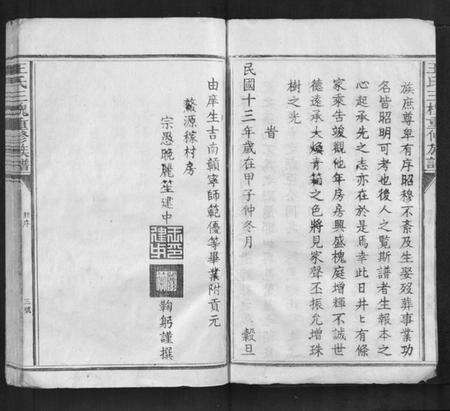 王氏三槐重修族譜
族庶尊卑有序昭穆不紊及生娶歿葬事業功
名皆昭明可考也後人之覽斯譜者生報本之
心起承先之志亦在於是焉幸此日井上有條
家乘告竣觀他年房房興盛槐庭增輝不誠世
德遠承大煥青箱之色將見家聲丕振允增珠
樹之光
旹
民國十三年歲在甲子仲冬月 穀旦
由庠生吉南贛寧師範優等畢業附貢元
鰲源稼村房
宗愚晚麗笙建中 鞠躬謹撰
王氏三槐重修族譜
序
三號